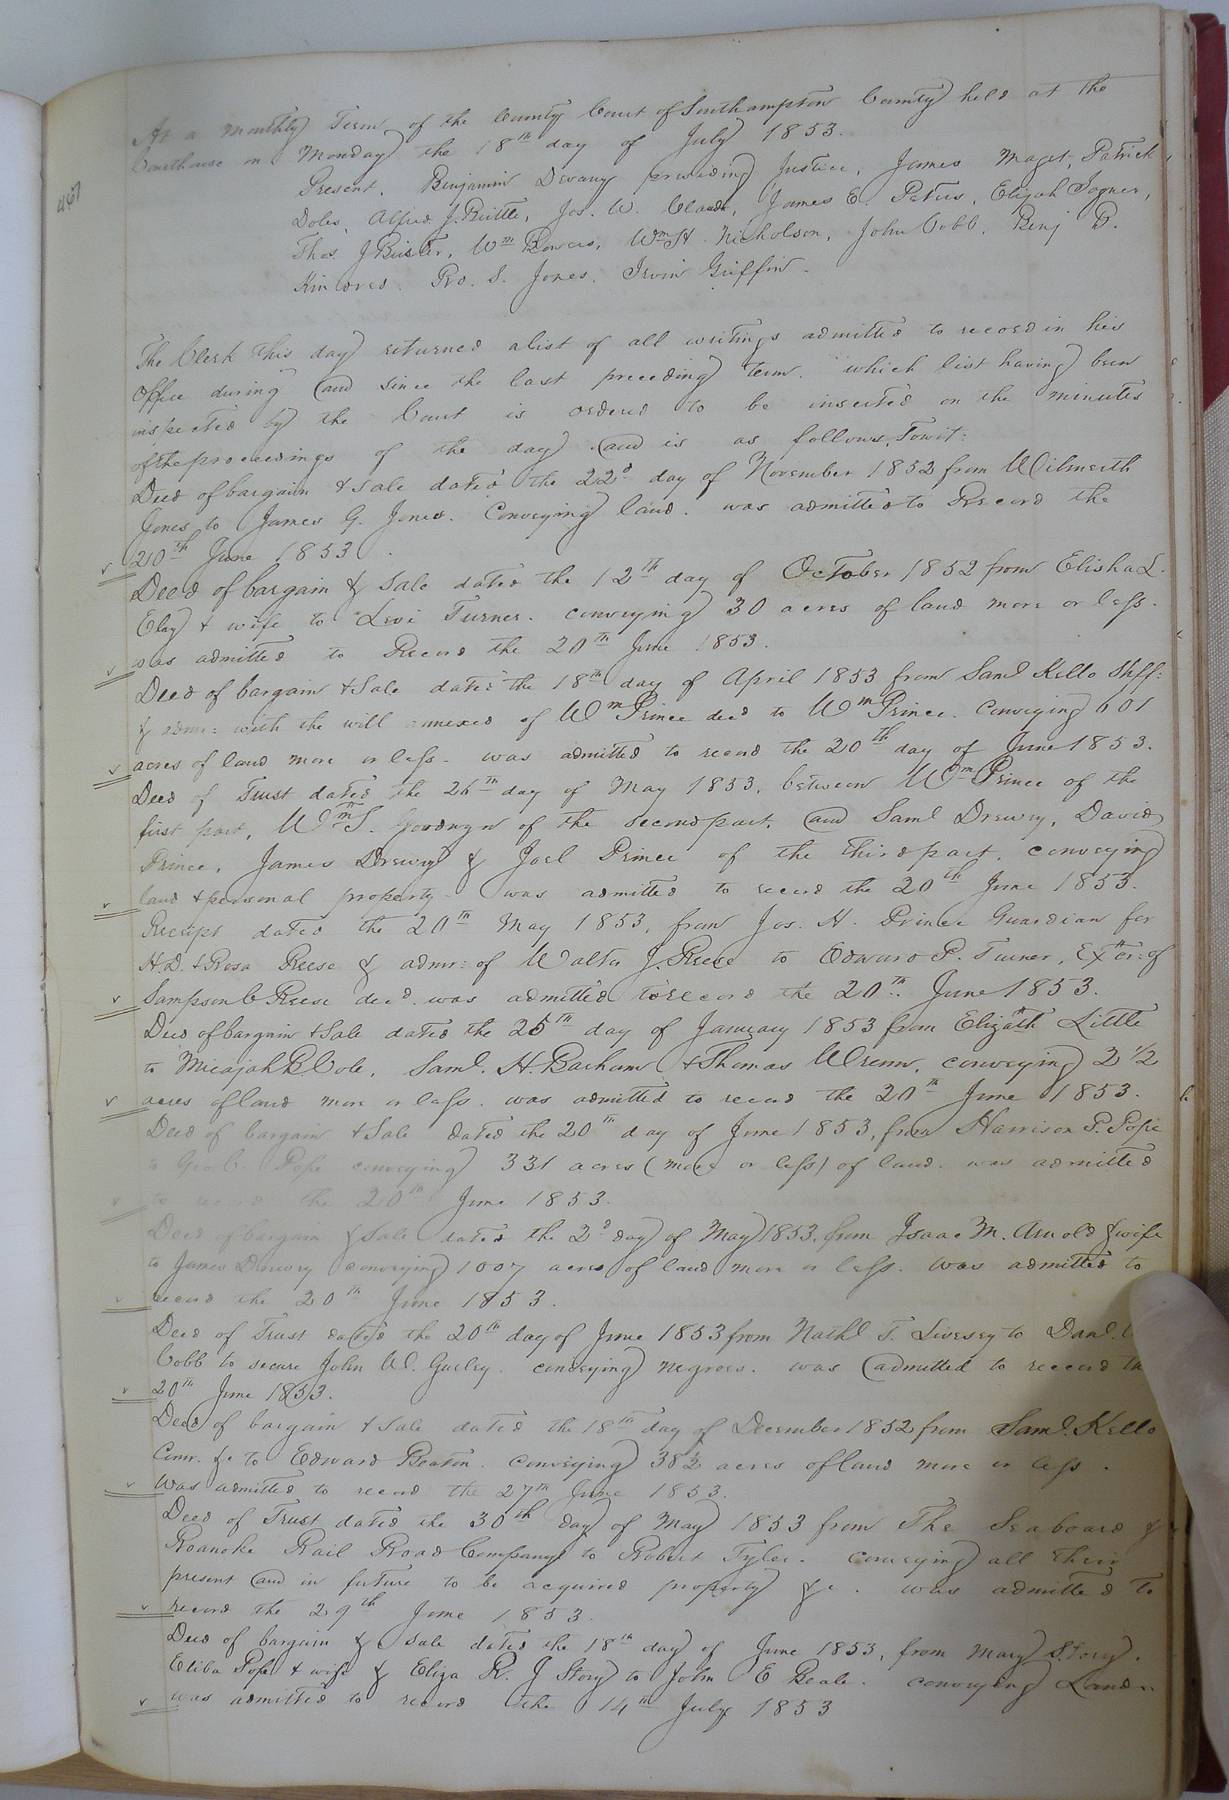 467
At a monthly Term of the County Court of Southampton County held at the
Courthouse on Monday the 18th day of July 1853.
Present, Benjamin Devany presiding Justice, James Maget, Patrick
Doles, Alfred J. Brittle, Jos. W. Claud, James E. Peters, Elijah Joyner,
Thos. J. Bister, Wm Bowers, Wm H. Nicholson, John Cobb, Benj B.
Kindred. Geo. S. Jones. Irvin Griffin.
The Clerk this day returned a list of all writings admitted to record in his
office during and since the last preceding Term. which list having been
inspected by the Court is ordered to be inserted on the minutes
of the proceedings of the day. and is as follows, Towit:
Deed of bargain & Sale dated the 22d day of November 1852 from Wilmerth
Jones to James G. Jones. Conveying land. was admitted to Record the
20th June 1853.
Deed of bargain & sale dated the 12th day of October 1852 from Elisha L.
Elay & wife to Levi Turner. conveying 30 acres of land more or less.
was admitted to Record the 20th June 1853.
Deed of bargain & Sale dated the 18th day of April 1853 from Saml Kello Shff:
& admr: with the will annexed of Wm Prince decd to Wm Prince. Conveying 601
acres of land more or less. was admitted to record the 20th day of June 1853.
Deed of Trust dated the 26th day of May 1853, between Wm Prince of the
first part, Wm S. Goodwyn of the second part, and Saml Drewry, David
Prince, James Drewry & Joel Prince of the third part, conveying
land & personal property. was admitted to record the 20th June 1853.
Receipt dated the 20th May 1853, from Jos. H. Prince Guardian for
H.D. & Rosa Reese & admr: of Walter J. Reese to Edward P. Turner, Exor: of
Sampson C Reese decd. was admitted to record the 20th June 1853.
Deed of bargain & Sale dated the 25th day of January 1853 from Elizath Little
to Micajah B. Cole, Saml. H. Barham & Thomas Wrenn, conveying 2 1/2
acres of land more or less. was admitted to record the 20th June 1853.
Deed of bargain & Sale dated the 20th day of June 1853, from Harrison P. Pope
to Geo. C. Pope conveying 331 acres (more or less) of land. was admitted
to record the 20th June 1853.
Deed of bargain & Sale dated the 2d day of May 1853. from Isaac M. Arnold & wife
to James Drewry conveying 1007 acres of land more or less. was admitted to
record the 20th June 1853.
Deed of Trust dated the 20th day of June 1853 from Nathl T. Livesey to Danl.
Cobb to secure John W. Gurley. conveying negroes. was admitted to record the
20th June 1853.
Deed of bargain & Sale dated the 18th day of December 1852 from Saml. Kello
Comr. &c to Edward Beaton. conveying 382 acres of land more or less.
was admitted to record the 27th June 1853.
Deed of Trust dated the 30th day of May 1853 from The Seaboard &
Roanoke Rail Road Company to Robert Tyler. conveying all their
present and in future to be acquired property &c. was admitted to
record the 29th June 1853.
Deed of bargain & sale dated the 18th day of June 1853, from Mary Story.
Eliba Pope & wife & Eliza R. J Story to John E Beale. conveying Land.
was admitted to record the 14th July 1853